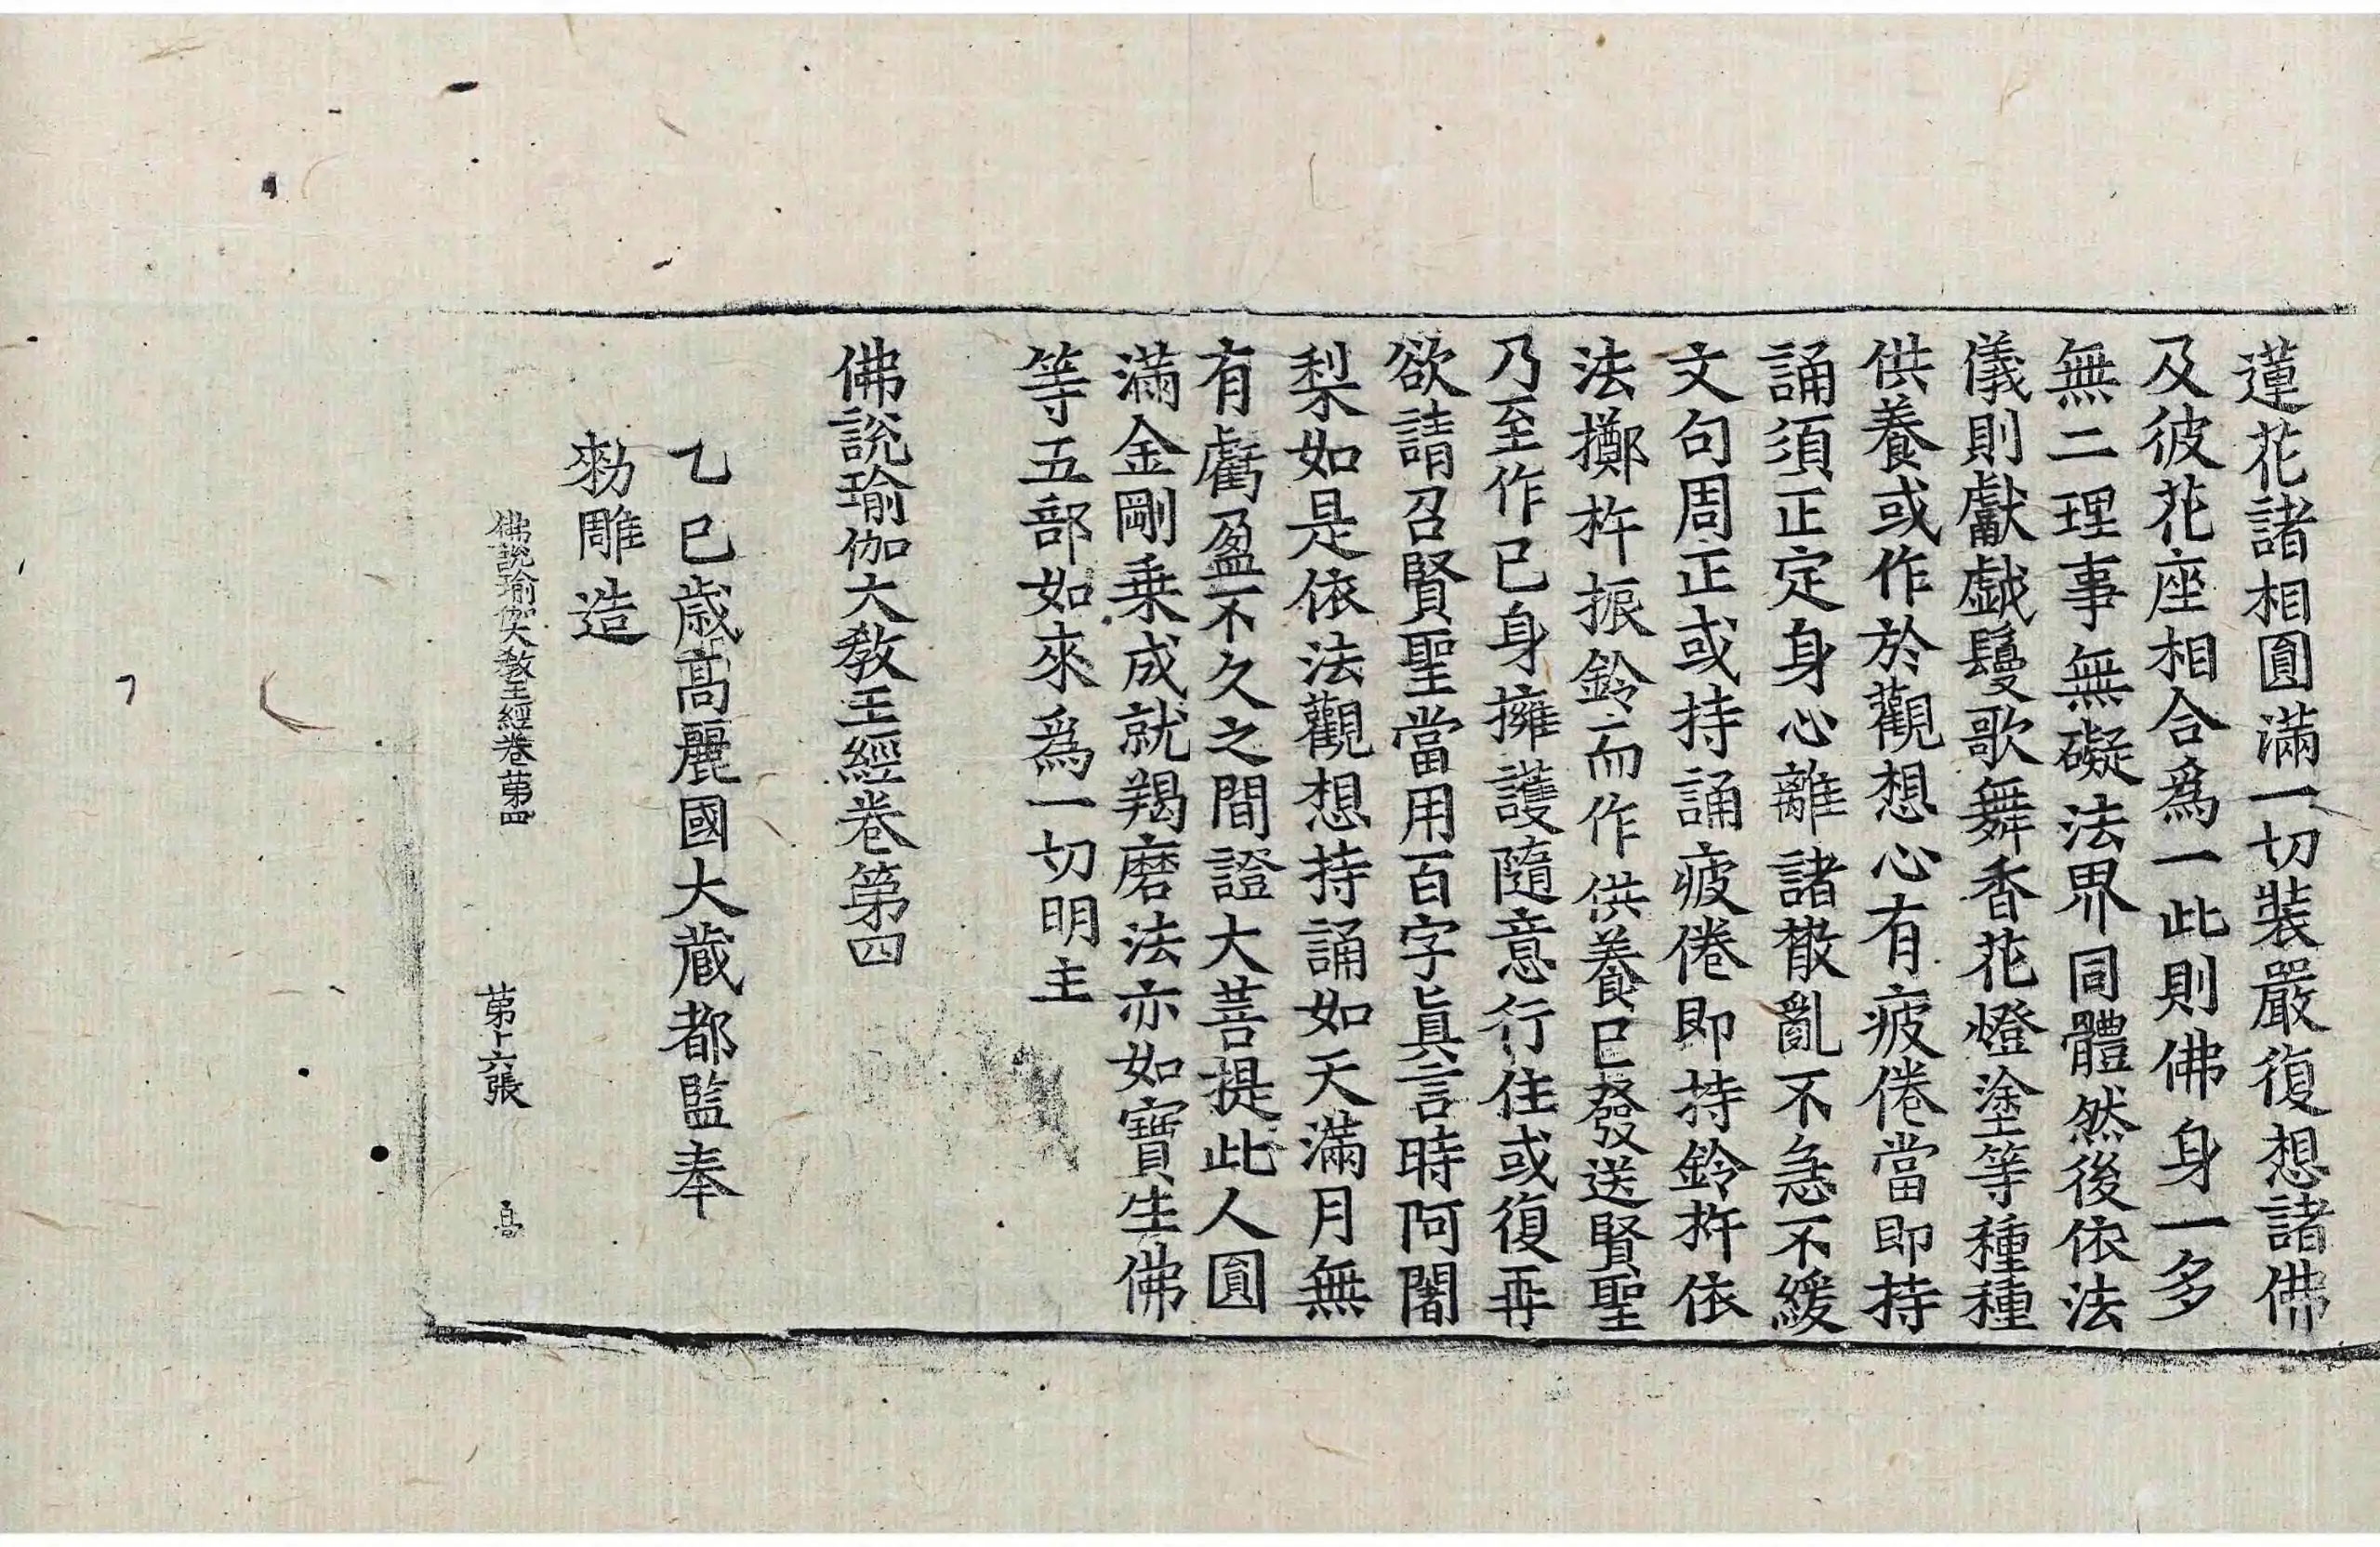 蓮花諸相圓滿一切裝嚴復想諸佛
及彼花座相合爲一此則佛身一多
無二理事無礙法界同體然後依法
儀則獻戱鬘歌舞香花燈塗等種種
供養或作於觀想心有疲倦當即持
誦須正定身心離諸散亂不急不緩
文句周正或持誦疲倦即持鈴杵依
法擲杵振鈴而作供養已發送賢聖
乃至作已身擁護隨意行住或復再
欲請召賢聖當用百字眞言時阿闍
梨如是依法觀想持誦如天滿月無
有虧盈不久之間證大菩提此人圓
滿金剛乗成就羯磨法亦如寶生佛
等五部如來爲一切明主
佛說瑜伽大敎王經卷第四
乙巳歳高麗國大藏都監奉
勑雕造
佛說瑜伽大敎王經卷苐四 苐十六張